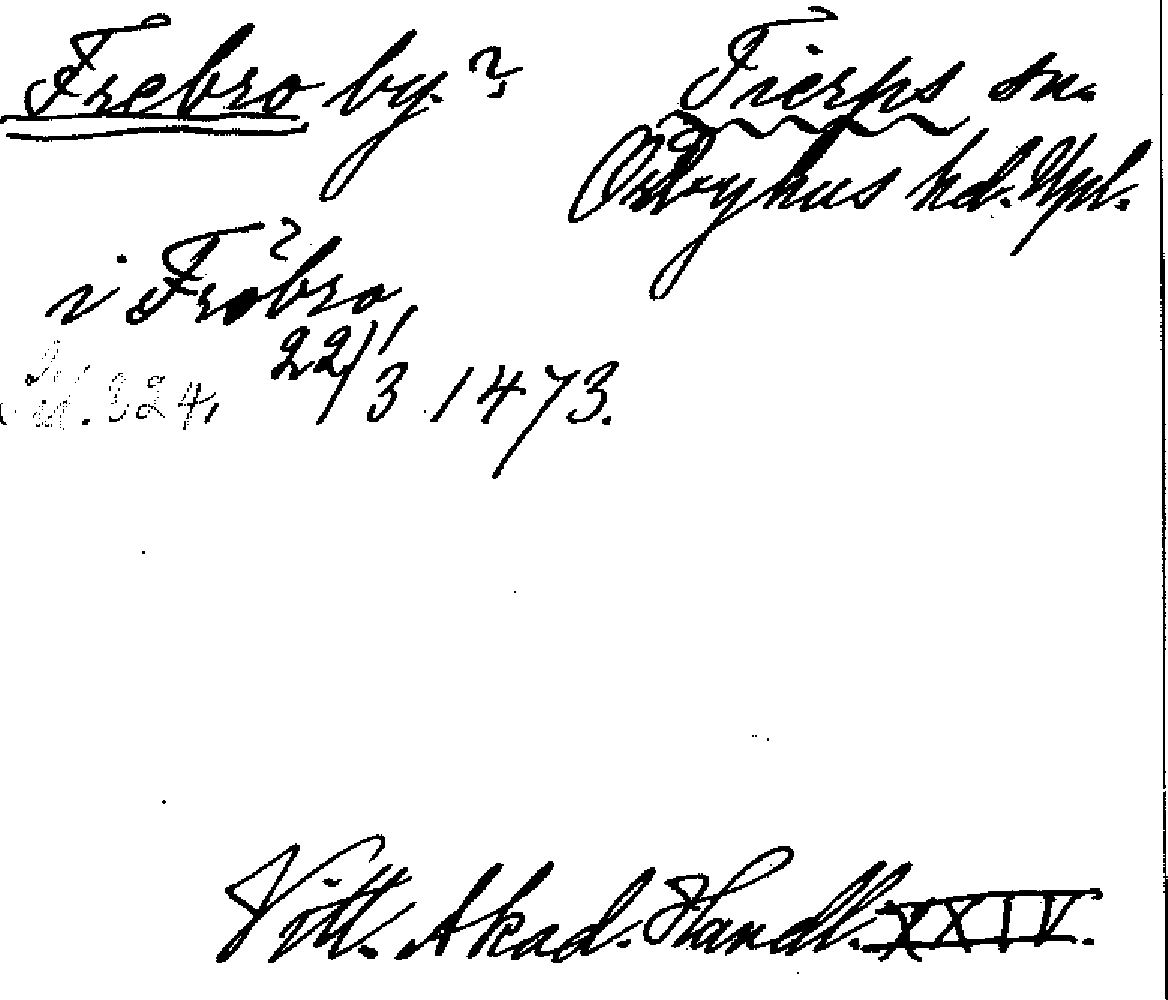 Frebro by.?
Tierps sn.
Örbyhus hd. Upl.
i Frobro,
22/3 1473.
324,
Vitt. Akad. Handl. XXIV.